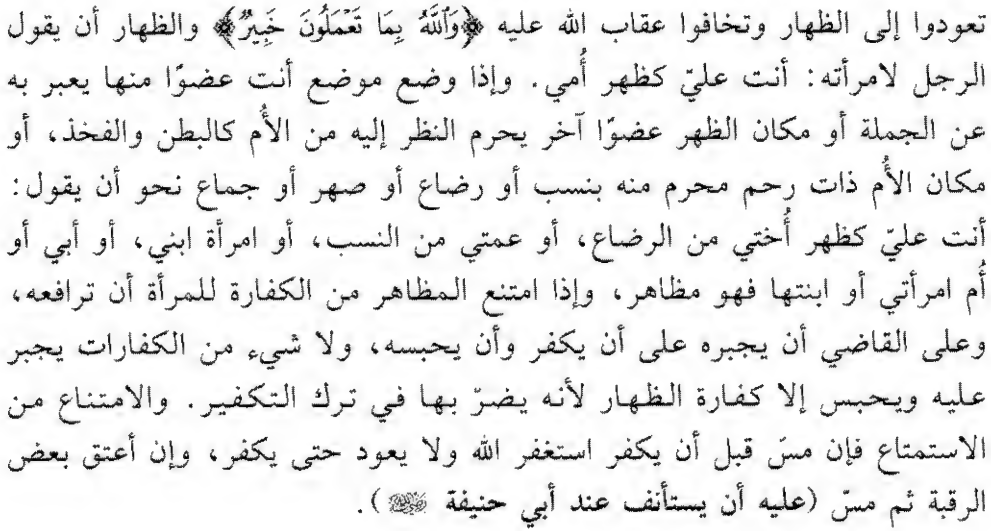 تعودوا إلى الظهار وتخافوا عقاب الله عليه ﴿وَٱللَّهُ بِمَا تَعْمَلُونَ خَبِيرٌ﴾ والظهار أن يقول
الرجل لامرأته: أنت عليّ كظهر أُمي. وإذا وضع موضع أنت عضوًا منها يعبر به
عن الجملة أو مكان الظهر عضوًا آخر يحرم النظر إليه من الأُم كالبطن والفخذ، أو
مكان الأُم ذات رحم محرم منه بنسب أو رضاع أو صهر أو جماع نحو أن يقول:
أنت عليّ كظهر أُختي من الرضاع، أو عمتي من النسب، أو امرأة ابني، أو أبي أو
أُم امرأتي أو ابنتها فهو مظاهر، وإذا امتنع المظاهر من الكفارة للمرأة أن ترافعه،
وعلى القاضي أن يجبره على أن يكفر وأن يحبسه، ولا شيء من الكفارات يجبر
عليه ويحبس إلا كفارة الظهار لأنه يضرّ بها في ترك التكفير. والامتناع من
الاستمتاع فإن مسّ قبل أن يكفر استغفر الله ولا يعود حتى يكفر، وإن أعتق بعض
الرقبة ثم مسّ (عليه أن يستأنف عند أبي حنيفة رضي الله عنه).